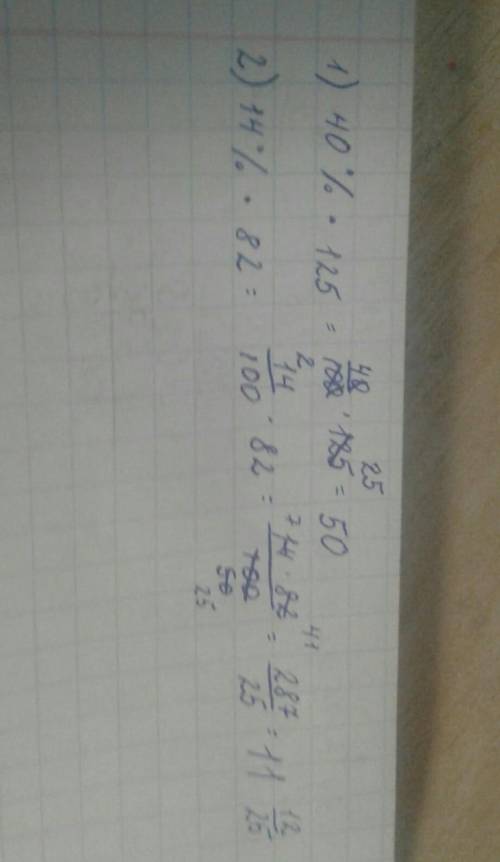 1) 40% · 125 = 40/100 · 125 25 = 50
2) 14% · 82 = 14/100 · 82 = 7 14 · 82 41 / 100 50 25 = 287/25 = 11 12/25